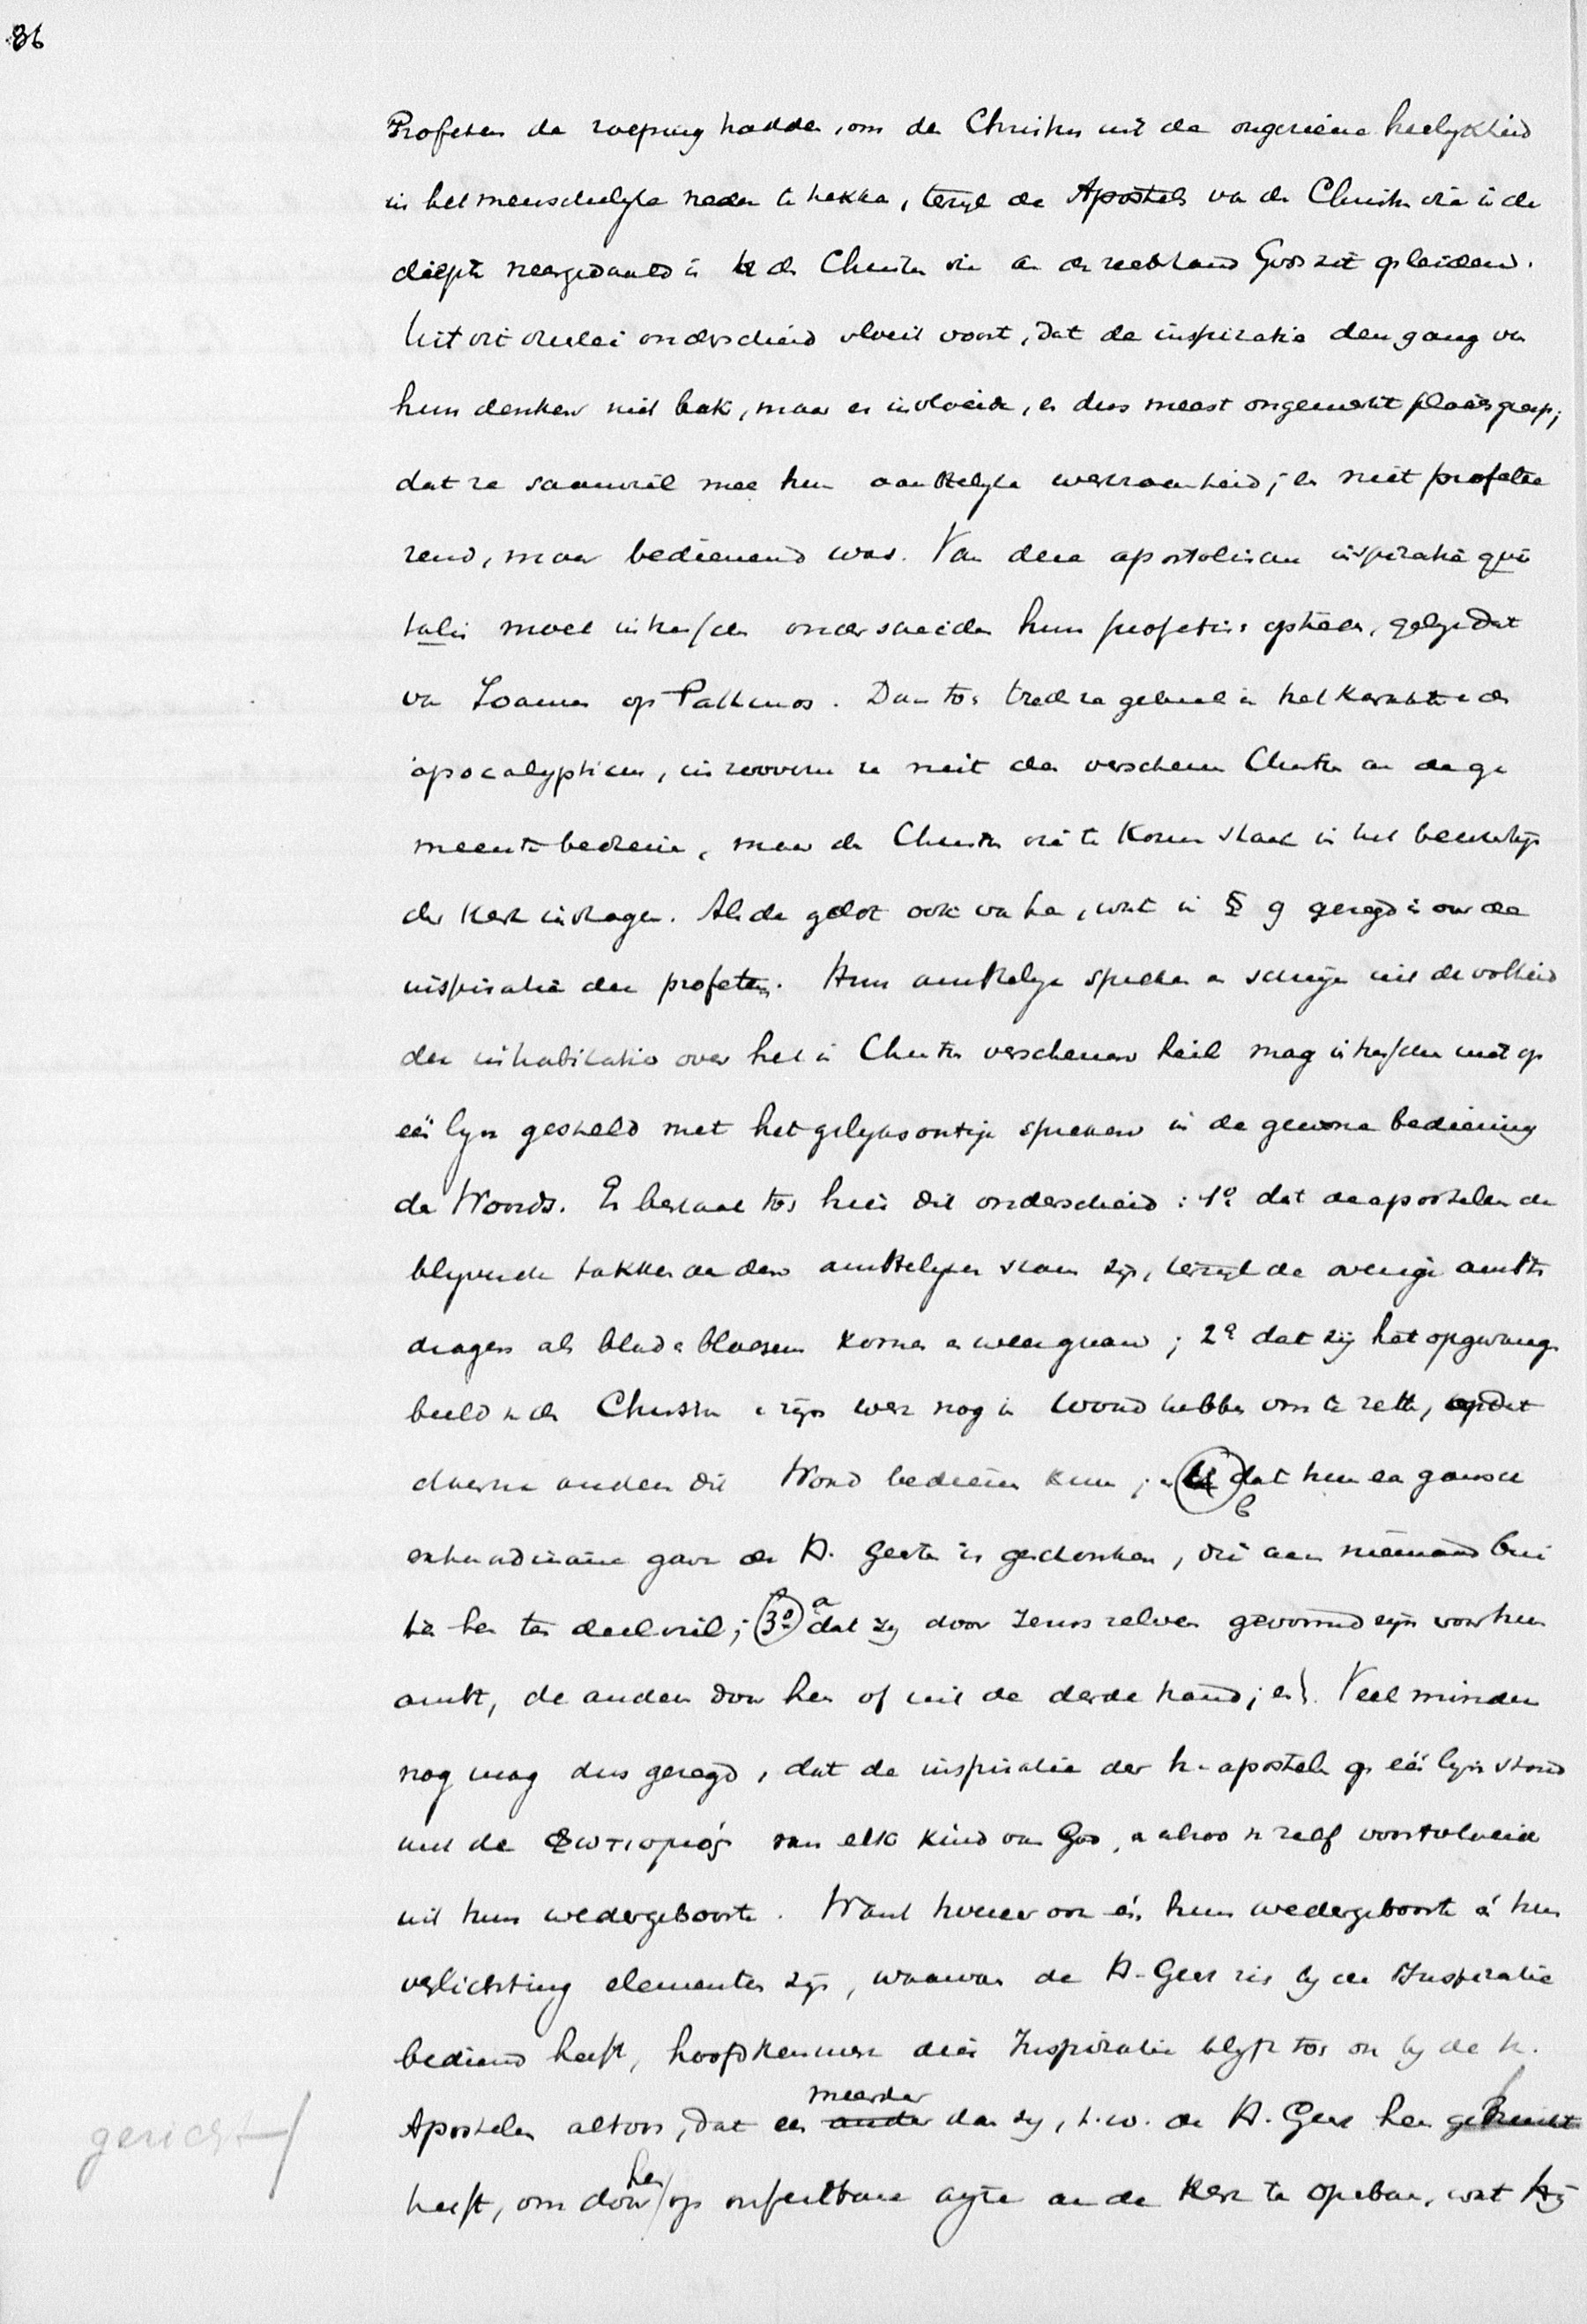 86
Profeten de roeping hadden, om den Christus uit de ongeziene heerlykheid
in het menschelyke neder te trekken, terwyl de Apostels van den Christus die in de
diepte neergedaald is tot den Christus die aan de rechterhand Gods zit opleiden.
Uit dit onderscheid vloeit voort, dat de inspiratie den gang van
hun denken niet brak, maar er invloeide, en dus meest ongemerkt plaats greep;
dat ze saamviel met hun ambtelyke werkzaamheid; en niet profetee
rend, maar bedienend was. Van deze apostolische inspiratie qua
talis moet intusschen onderscheiden hun profetisch optreden, gelyk dat
van Joannes op Pathmos. Dan toch treedt ze geheel in het karakter der
apocalyptiek, in zooverre ze niet den verschenen Christus aan de ge
meente bedienen, maar den Christus die te komen staat in het bewustzyn
der Kerk indragen. Alsdan geldt ook van hen, wat in § 9 gezegd is over de
inspiratie der profeten. Hun ambtelyk spreken en schryven uit de volheid
der inhabitatio over het in Christus verschenen heil mag intusschen niet op
één lyn gesteld met het gelyksoortige spreken in de gewone bediening
des Woords. Er bestaat toch hier dit onderscheid: 1º dat de apostelen de
blyvende takken aan den ambtelyken stam zyn, terwyl de overige ambts
dragers als blad en bloesem komen en weergaan; 2º dat zy het opgevangen
beeld van den Christus en zyn werk nog in woord hebben om te zetten, opdat
daarna anderen dit Woord bedienen kunnen; en b dat hun een gansch
extraordinaire gave des H. Geestes is geschonken, die aan niemand bui
ten hen ten deel viel; 3º a dat zy door Jezus zelven gevormd zyn voor hun
ambt, de anderen door hen of uit de derde hand; en. Veel minder
nog mag dus gezegd, dat de inspiratie der h. apostelen op één lyn stond
met de φωτισμός van elk kind van God, en alzoo van zelf voortvloeide
uit hun wedergeboorte. Want hoezeer ook én hun wedergeboorte én hun
verlichting elementen zyn, waarvan de H. Geest zich by de Inspiratie
bediend heeft, hoofdkenmerk dezer Inspiratie blyft toch ook by de h.
Apostelen altoos, dat een meerder ander dan zy, t.w. de H. Geest hen gebruikt
gericht
heeft, om door hen op onfeilbare wyze aan de Kerk te openbaren, wat Hy